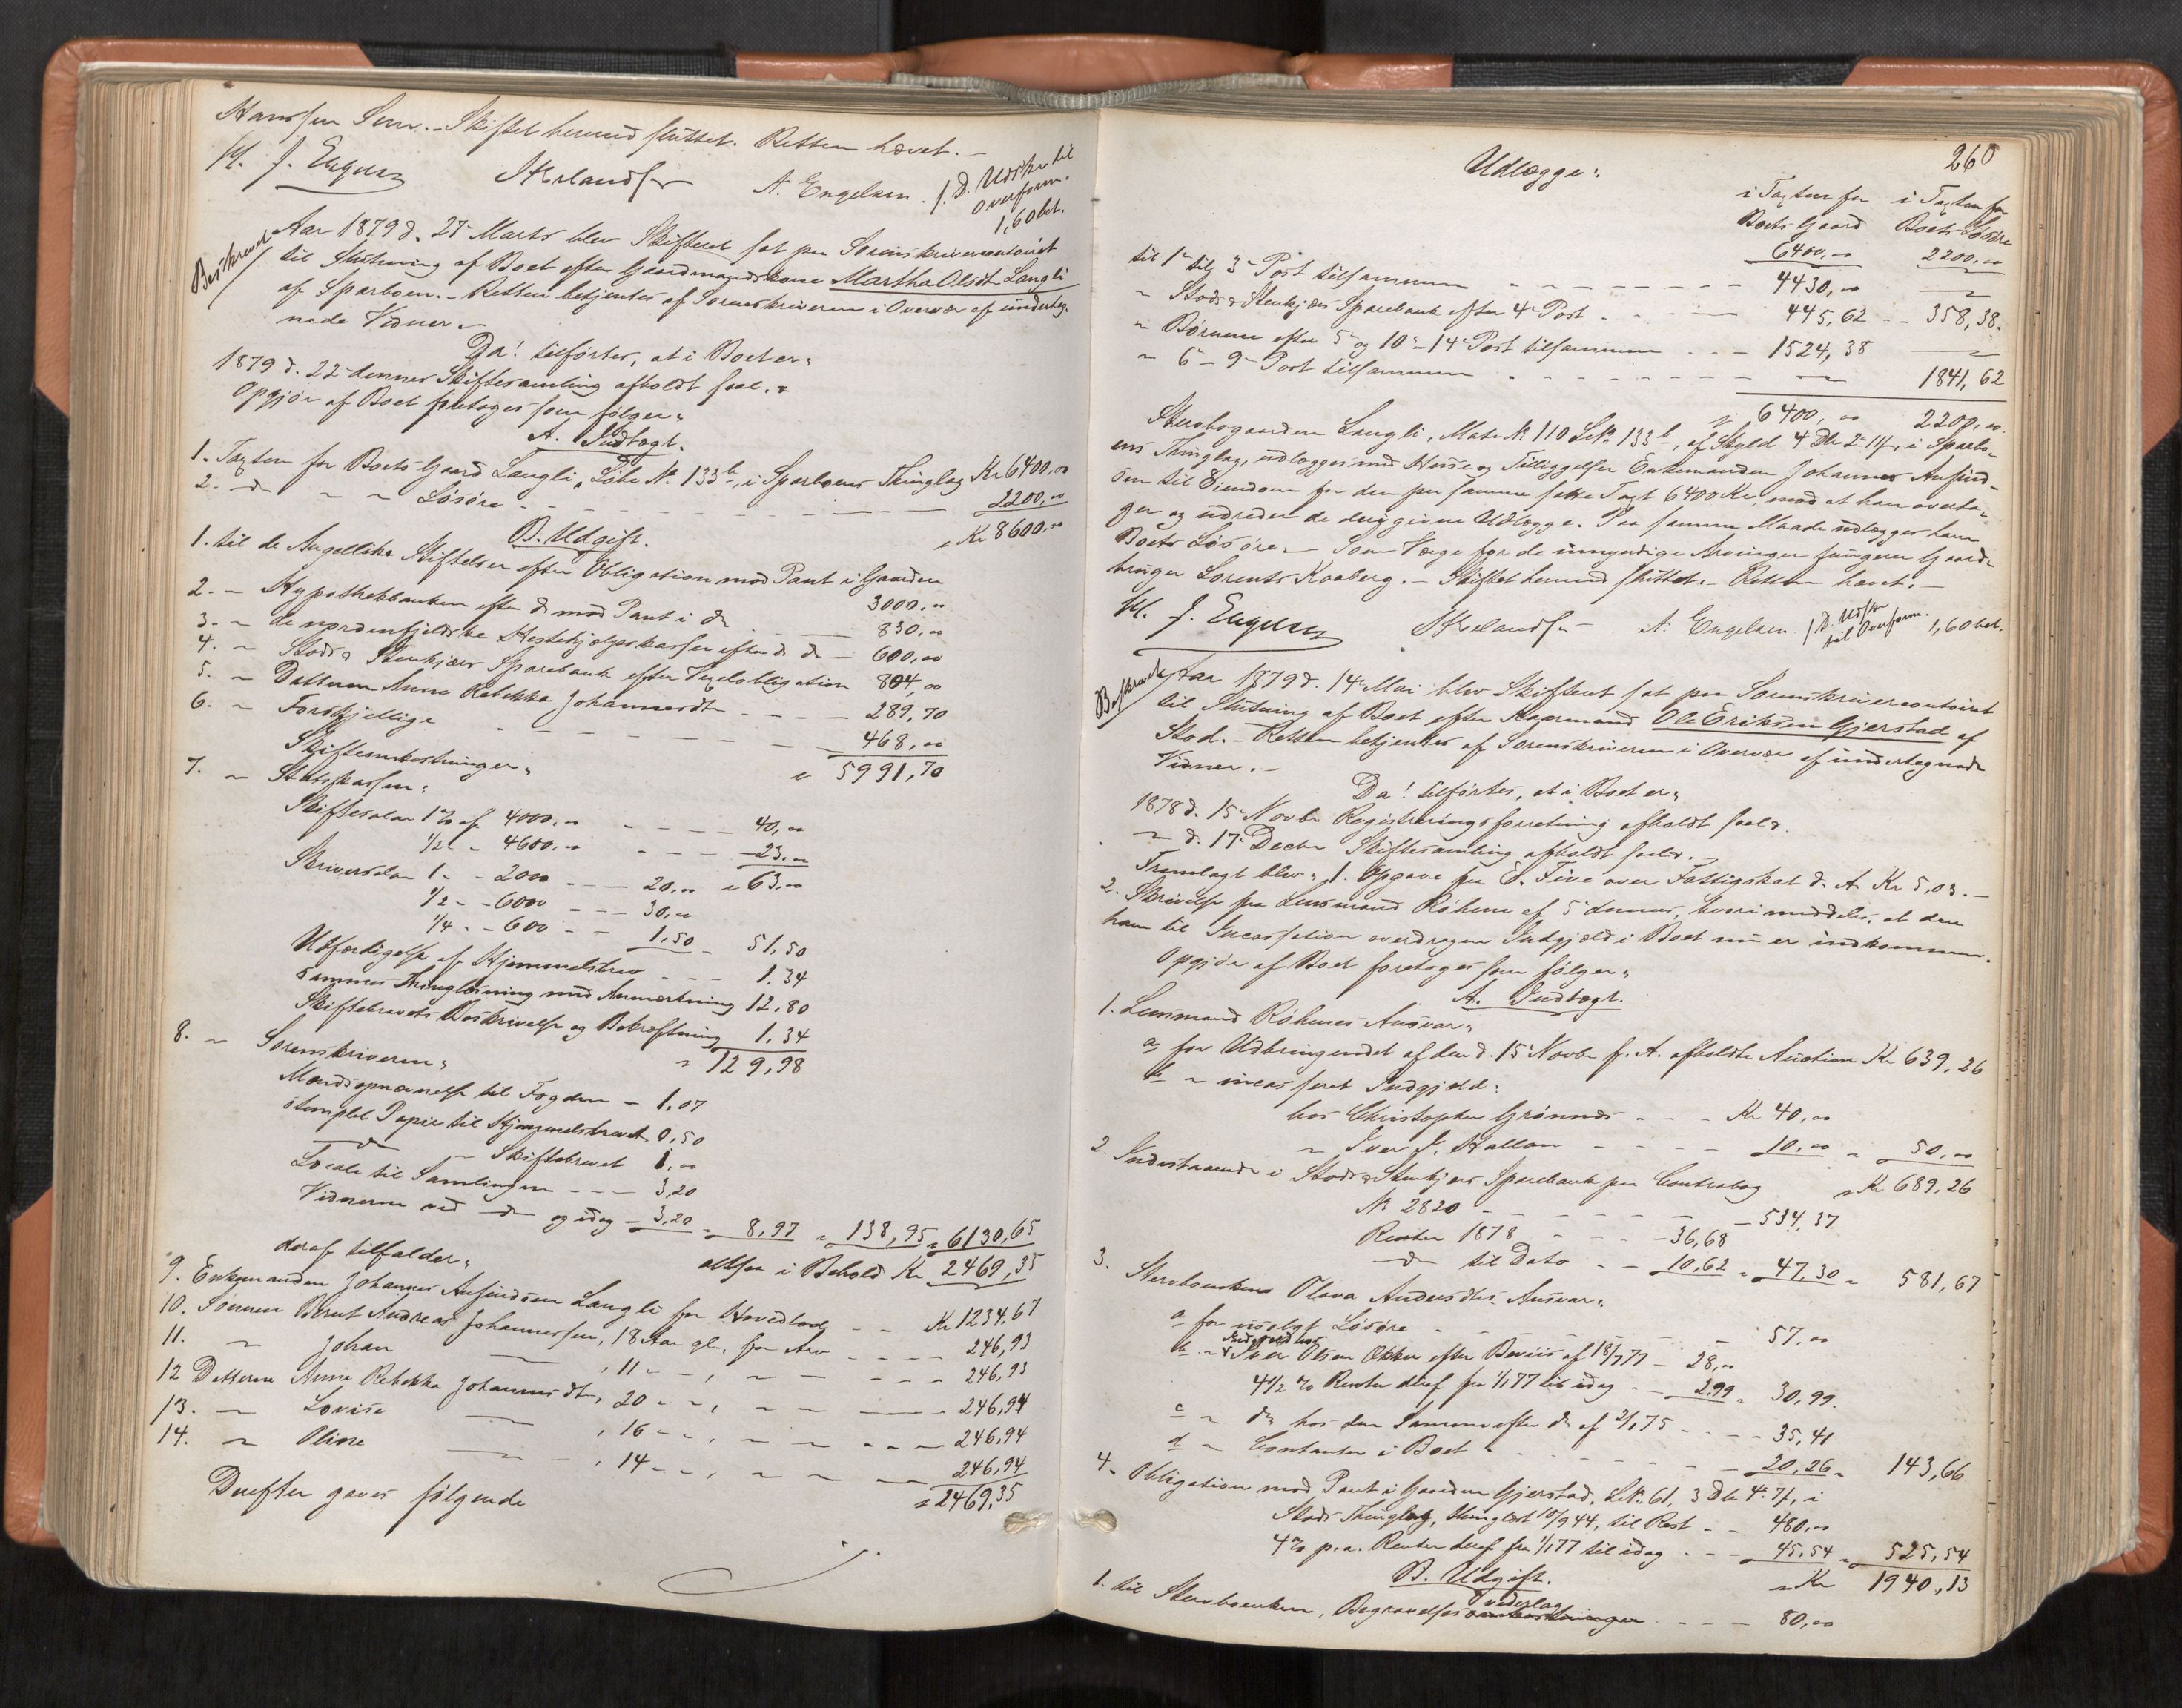 Hanssen Sem. - Skiftet hermed sluttet. Retten hævet. -
A. Engelsen. f. d. Udskr. til
Overform.
1,60 bet.
Beskrevet
Aar 1879 d. 27 Marts blev Skifteret sat paa Sorenskrivercontoiret
til Slutning af Boet efter Gaardmandskone Martha Olsdt Langli
af Sparboen. - Retten betjentes af Sorenskriveren i Overvær af underteg-
nede Vidner. -
Da! tilførtes, at i Boet er:
1879 d. 22 dennes Skiftesamling afholdt saal.
Opgjør af Boet foretoges som følger:
A. Indtægt.
1. Taxten for Boets Gaard Langli, Løbe No 133b, i Sparboens Thinglag Kr 6400,00
2. do " " Løsøre - - - 2200,00
Kr 8600,00
B. Udgift.
1. til de Angellske Stiftelser efter Obligation med Pant i Gaarden 3000,00
2. - Hypothekbanken efter do med Pant i do 830,00
3. - de nordenfjeldske Hestehjælpskasser efter do do - 600,00
4. - Stods & Stenkjær Sparebank efter Vexelobligation 804,00
5. - Datteren Anne Rebekka Johannesdtr - - - 289,70
6. - Forskjellige - - - 468,00
5991,70
Skifteomkostninger:
7. - Statskassen:
Skiftesalær 1% af 4000,00 - - - 40,00
1/2 - - 4600,00 - - - 23,00
63,00
Skriversalær 1 - - 2000 - - - 20,00
1/2 - - 6000 - - - 30,00
1/4 - - 600 - - 1,50 - 51,50
Udfærdigelse af Hjemmelsbrev - - - 1,34
Sammes Thinglæsning med Anmærkning 12,80
Skiftebrevets Beskrivelse og Bekræftning 1,34
129,98
8. - Sorenskriveren:
Mændsopnævnelse til Fogden - 1,07
stemplet Papir til Hjemmelsbrevet 0,50
do - Skiftebrevet 1,00
Locale til Samlingen - - - 3,20
Vidnerne ved do og idag - 3,20 - 8,97 - 138,95 - 6130,65
altsaa i Behold Kr 2469,35
deraf tilfalder:
9. Enkemanden Johannes Ansindsen Langli for Hovedlod - - Kr 1234,67
10. Sønnen Bernt Andreas Johannessen, 18 Aar gl., for Arv - - - 246,93
11. - Johan - , 11 - - , - - - 246,93
12 Datteren Anne Rebekka Johannesdt, 20 - - , - - - 246,94
13. - Lovise - , 16 - - , - - - 246,94
14. - Oline - , 14 - - , - - - 246,94
2469,35
Derefter gaves følgende
260
Udlægge:
i Taxten for i Taxten for
Boets Gaard Boets Løsøre
6400,00 2200,00
til 1ste til 3de Post tilsammen - - - 4430,00 -
- Stods & Stenkjær Sparebank efter 4de Post - - - 445,62 - - 358,38.
- Børnene efter 5te og 10de - 14de Post tilsammen - - - 1524,38 -
- 6te - 9de Post tilsammen - - - 1841,62
6400,00 2200,00
Stervbogaarden Langli, Matr. No 110 L.No 133b, af Skyld 4 Dlr 2 , i Sparbo-
ens Thinglag, udlægges med Huse og Tilliggelser Enkemanden Johannes Ansind-
sen til Eiendom for den paa samme satte Taxt 6400 Kr, mod at han overta-
ger og udreder de derpaa givne Udlægge. Paa samme Maade udlægges ham
Boets Løsøre. - Som Værge for de umyndige Arvinger fungerer Gaard-
bruger Lorents Kaaberg. - Skiftet hermed sluttet. - Retten hævet. -
A. Engelsen f. d. Udskr.
til Overform. 1,60 bet.
Beskrevet
Aar 1879 d. 14 Mai blev Skifteret sat paa Sorenskrivercontoiret
til Slutning af Boet efter Kaarmand Ole Eriksen Gjerstad af
Stod. - Retten betjentes af Sorenskriveren i Overvær af undertegnede
Vidner. -
Da! tilførtes, at i Boet er:
1878 d. 15 Novbr Registreringsforretning afholdt saal.
- d. 17 Decbr Skiftesamling afholdt saal.
Fremlagt blev: 1. Opgave fra E. Five over Fattigskat d. A. Kr 5,03. -
2. Skrivelse fra Lensmand Røhme af 5 dennes, hvori meddeles, at den
ham til Incassation overdragne Indgjæld i Boet nu er indkommen.
Opgjør af Boet foretoges som følger:
A. Indtægt.
1. Lensmand Røhmes Ansvar:
a for Udbringendet af den d. 15 Novbr f. A. afholdte Auction Kr 639,26
b - incasseret Indgjæld:
hos Christopher Grønnæs - - - Kr 40,00
- Iver J. Hallan - - - 10,00 - 50,00
Kr 689,26
2. Indestaaende i Stods & Stenkjær Sparebank paa Contrabog
No 2820 - - - 534,37
Renter 1878 - - - 36,68
do til Dato - - 10,62 - 47,30 - 581,67
3. Stervboenken Olava Andersdtrs Ansvar:
a for usolgt Løsøre - - - 57,00
b - Indgjæld hos Iver Olsen Økker efter Beviis af 18/7 77 - 28,00
4 1/2 % Renter deraf fra 1/1 77 til idag - - 2,99 - 30,99.
c - do hos den Samme efter do af 2/1 75 - - - 35,41
d - Contanter i Boet - - - 20,26 - 143,66
4. Obligation med Pant i Gaarden Gjerstad, L.No 61, 3 Dlr 4 7 , i
Stods Thinglag, thinglæst 10/9 44, til Rest - - 480,00
4% p.a. Renter deraf fra 1/1 77 til idag - - - 45,54 - 525,54
Kr 1940,13
B. Udgift.
1. til Stervboenken, Begravelses vederlag omkostninger - - - 80,00